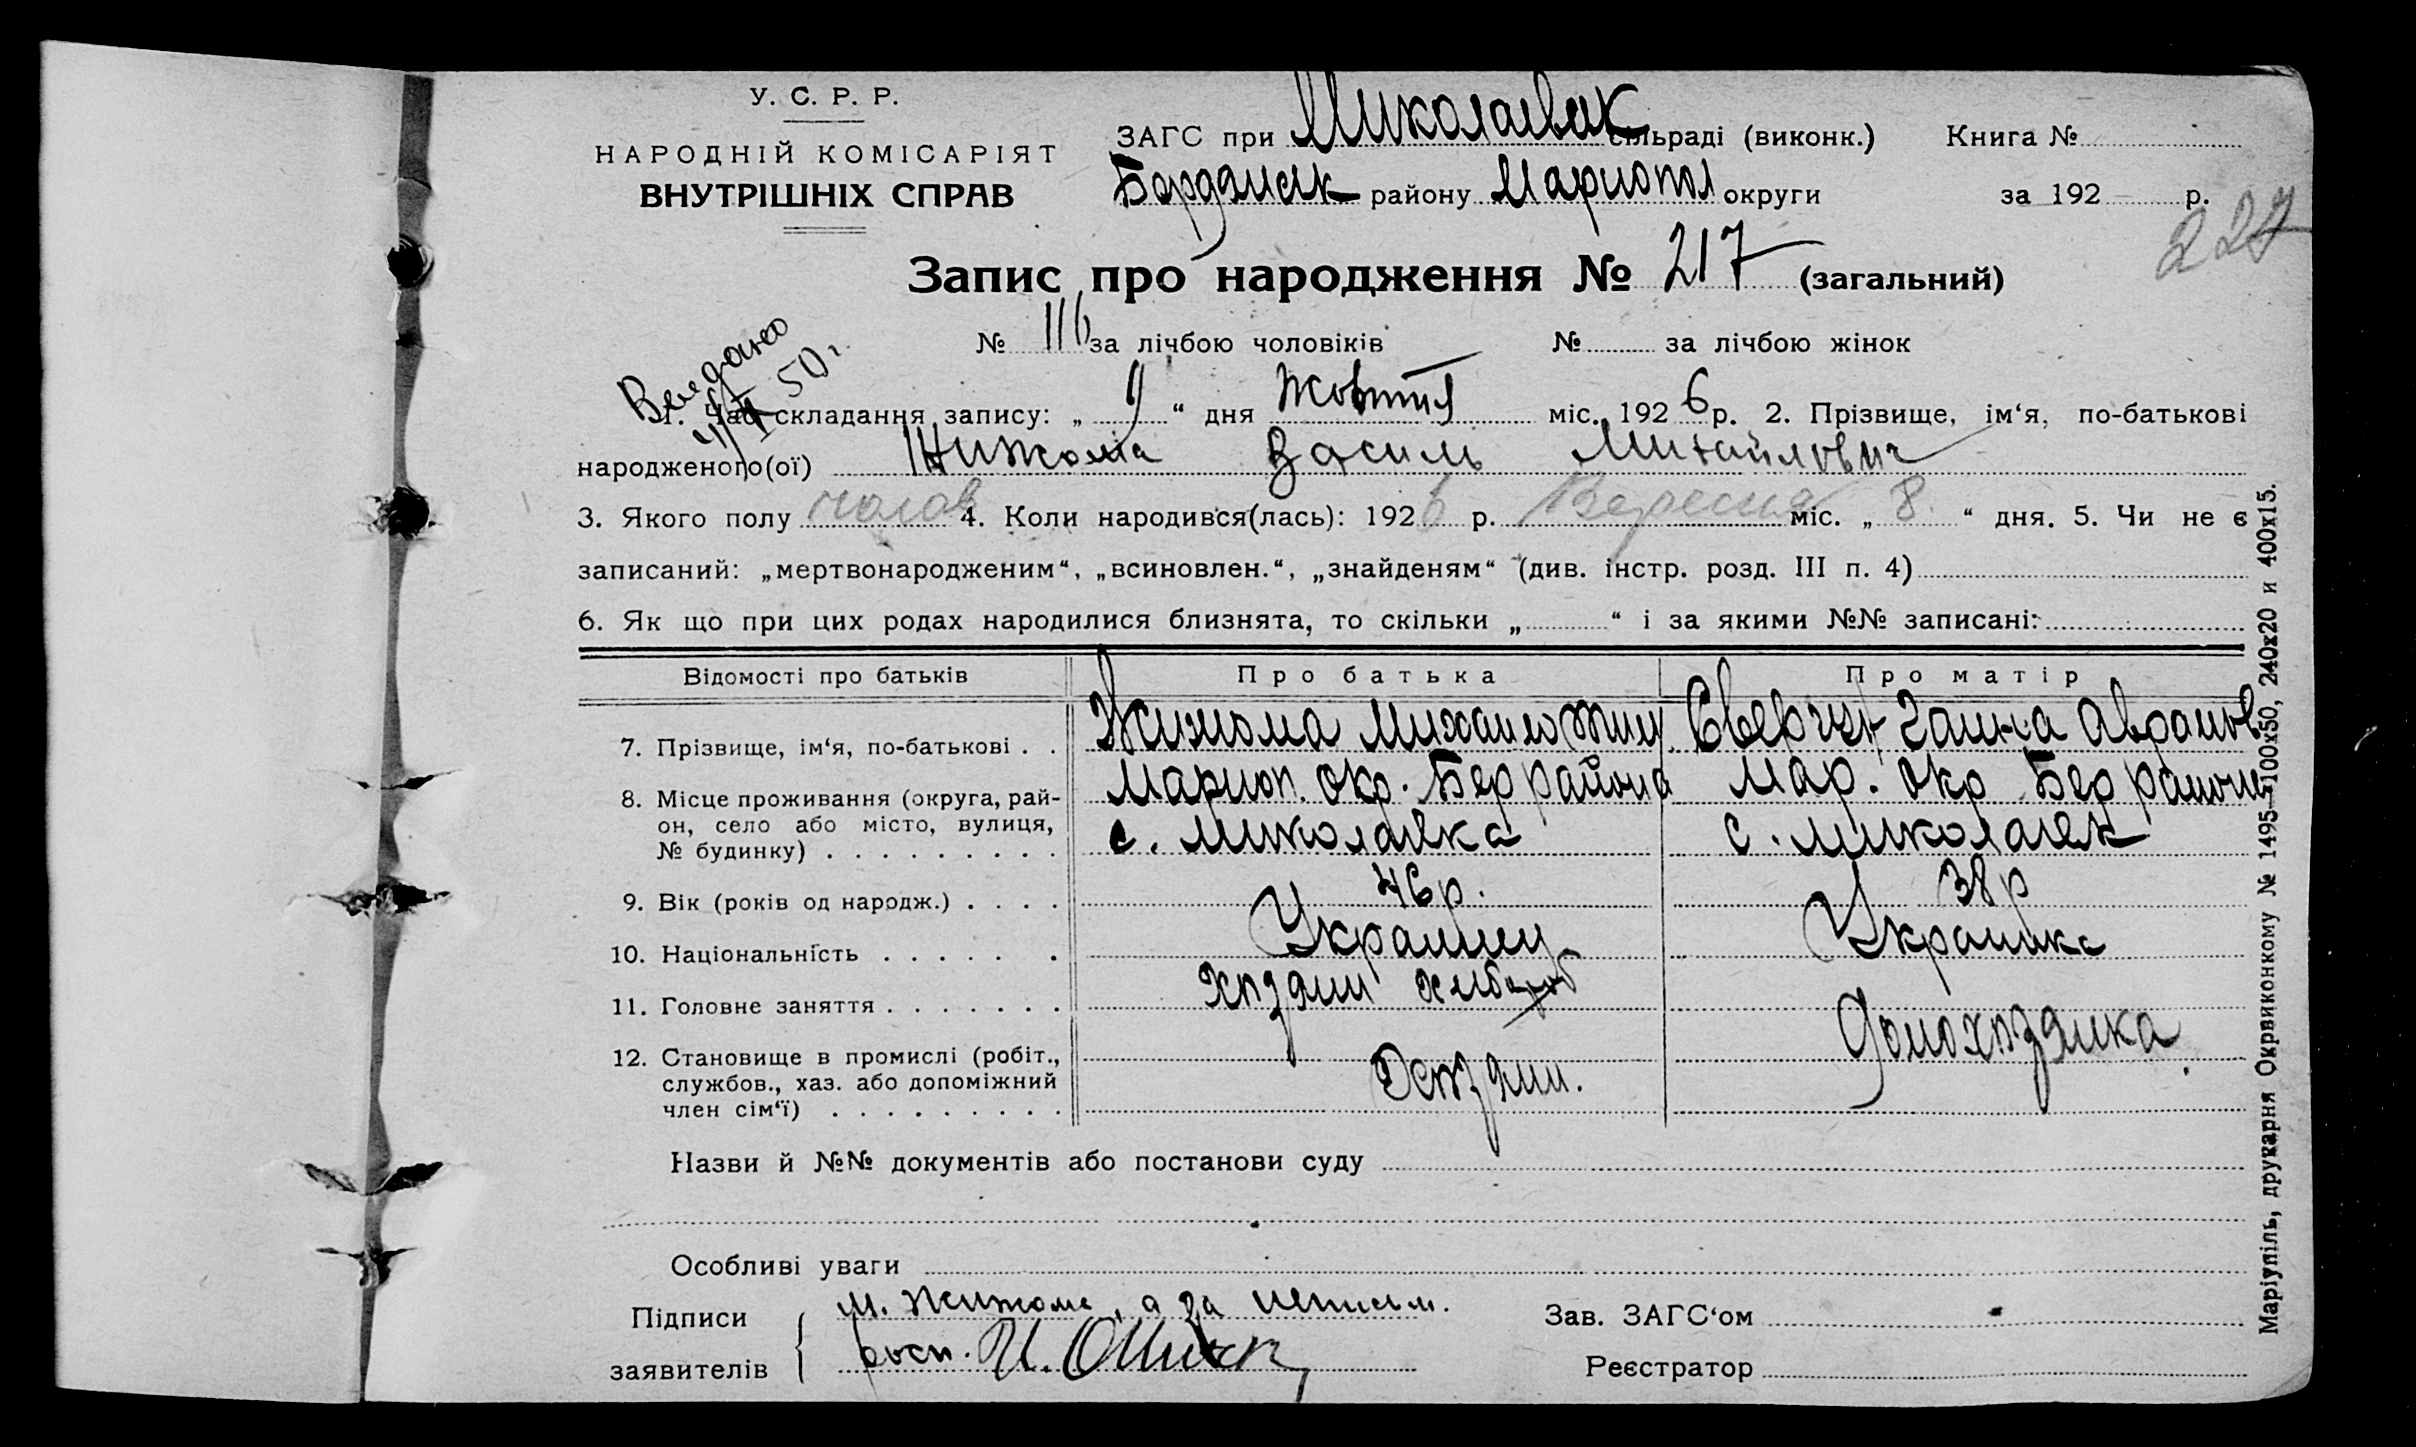 У. С. Р. Р.
НАРОДНІЙ КОМІСАРІЯТ
ВНУТРІШНІХ СПРАВ
ЗАГС при Миколаевск сільраді (виконк.) Книга №
Бердянськ району Мариопол округи за 192 р.
227
Запис про народження № 217 (загальний)
№ 116 за лічбою чоловіків № за лічбою жінок
50 г.
1. Час складання запису: „ 9 “ дня Жовтня міс. 1926 р. 2. Прізвище, ім‘я, по-батькові
народженого(ої) Жижома Василь Михайлович
3. Якого полу чолов 4. Коли народився(лась): 1926 р. Вересня міс. „ 8 “ дня. 5. Чи не є
записаний: „мертвонародженим“, „всиновлен.“, „знайденям“ (див. інстр. розд. III п. 4)
6. Як що при цих родах народилися близнята, то скільки „ “ і за якими №№ записані:
Відомості про батьків Про батька Про матір
7. Прізвище, ім‘я, по-батькові . . Жижома Михаило Ганна
8. Місце проживання (округа, рай- Мариоп. окр. Бер района Мар. окр Бер района
он, село або місто, вулиця, с. Миколаевка с. Миколаевк
№ будинку) . . . . . . . . .
9. Вік (років од народж.) . . . . 46 р. 38 р
10. Національність . . . . . . Украинец Украинка
11. Головне заняття . . . . . . . хозяин хлібороб
домохозяика
12. Становище в промислі (робіт.,
службов., хаз. або допоміжний хозяин.
член сім‘ї) . . . . . . . . .
Назви й №№ документів або постанови суду
Особливі уваги
Підписи М. Жижома, а за неписьм. Зав. ЗАГС‘ом
заявителів росп. И. Реєстратор
Маріупіль, друкарня Окрвиконкому № 1495—100x50, 240x20 и 400x15.